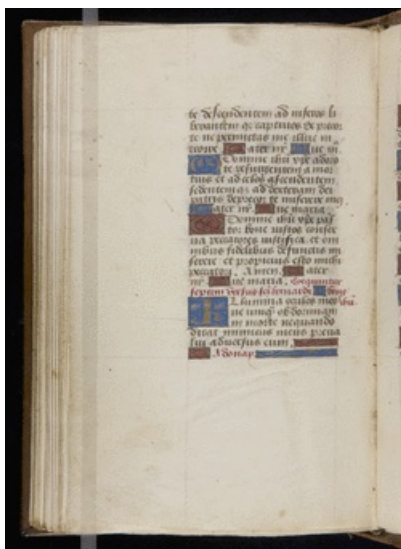 te descendentem ad inferos li
berantem q3 captiuos deprecor
te ne permittas me illuc in
troire Pater nr Aue m
O Domine ihu xpe adoro
te resurgentem a mor
tuis et ad celos ascendentem
sedentemq3 ad dexteram dei
patris deprecor te miserere mei
Pater nr Aue maria
O Domine ihu xpe pas
tor bone iustos conser
ua peccatores iustifica et om
nibus fidelibus defunctis mi
serere et propicius esto michi
peccatori. Amen. Pater
nr Aue maria. Sequuntur
septem versus sci bernardi
Illumina oculos meos
ne unq3 obdormiam
in morte ne quando
dicat inimicus meus preua
lui aduersus eum.
Adonay.